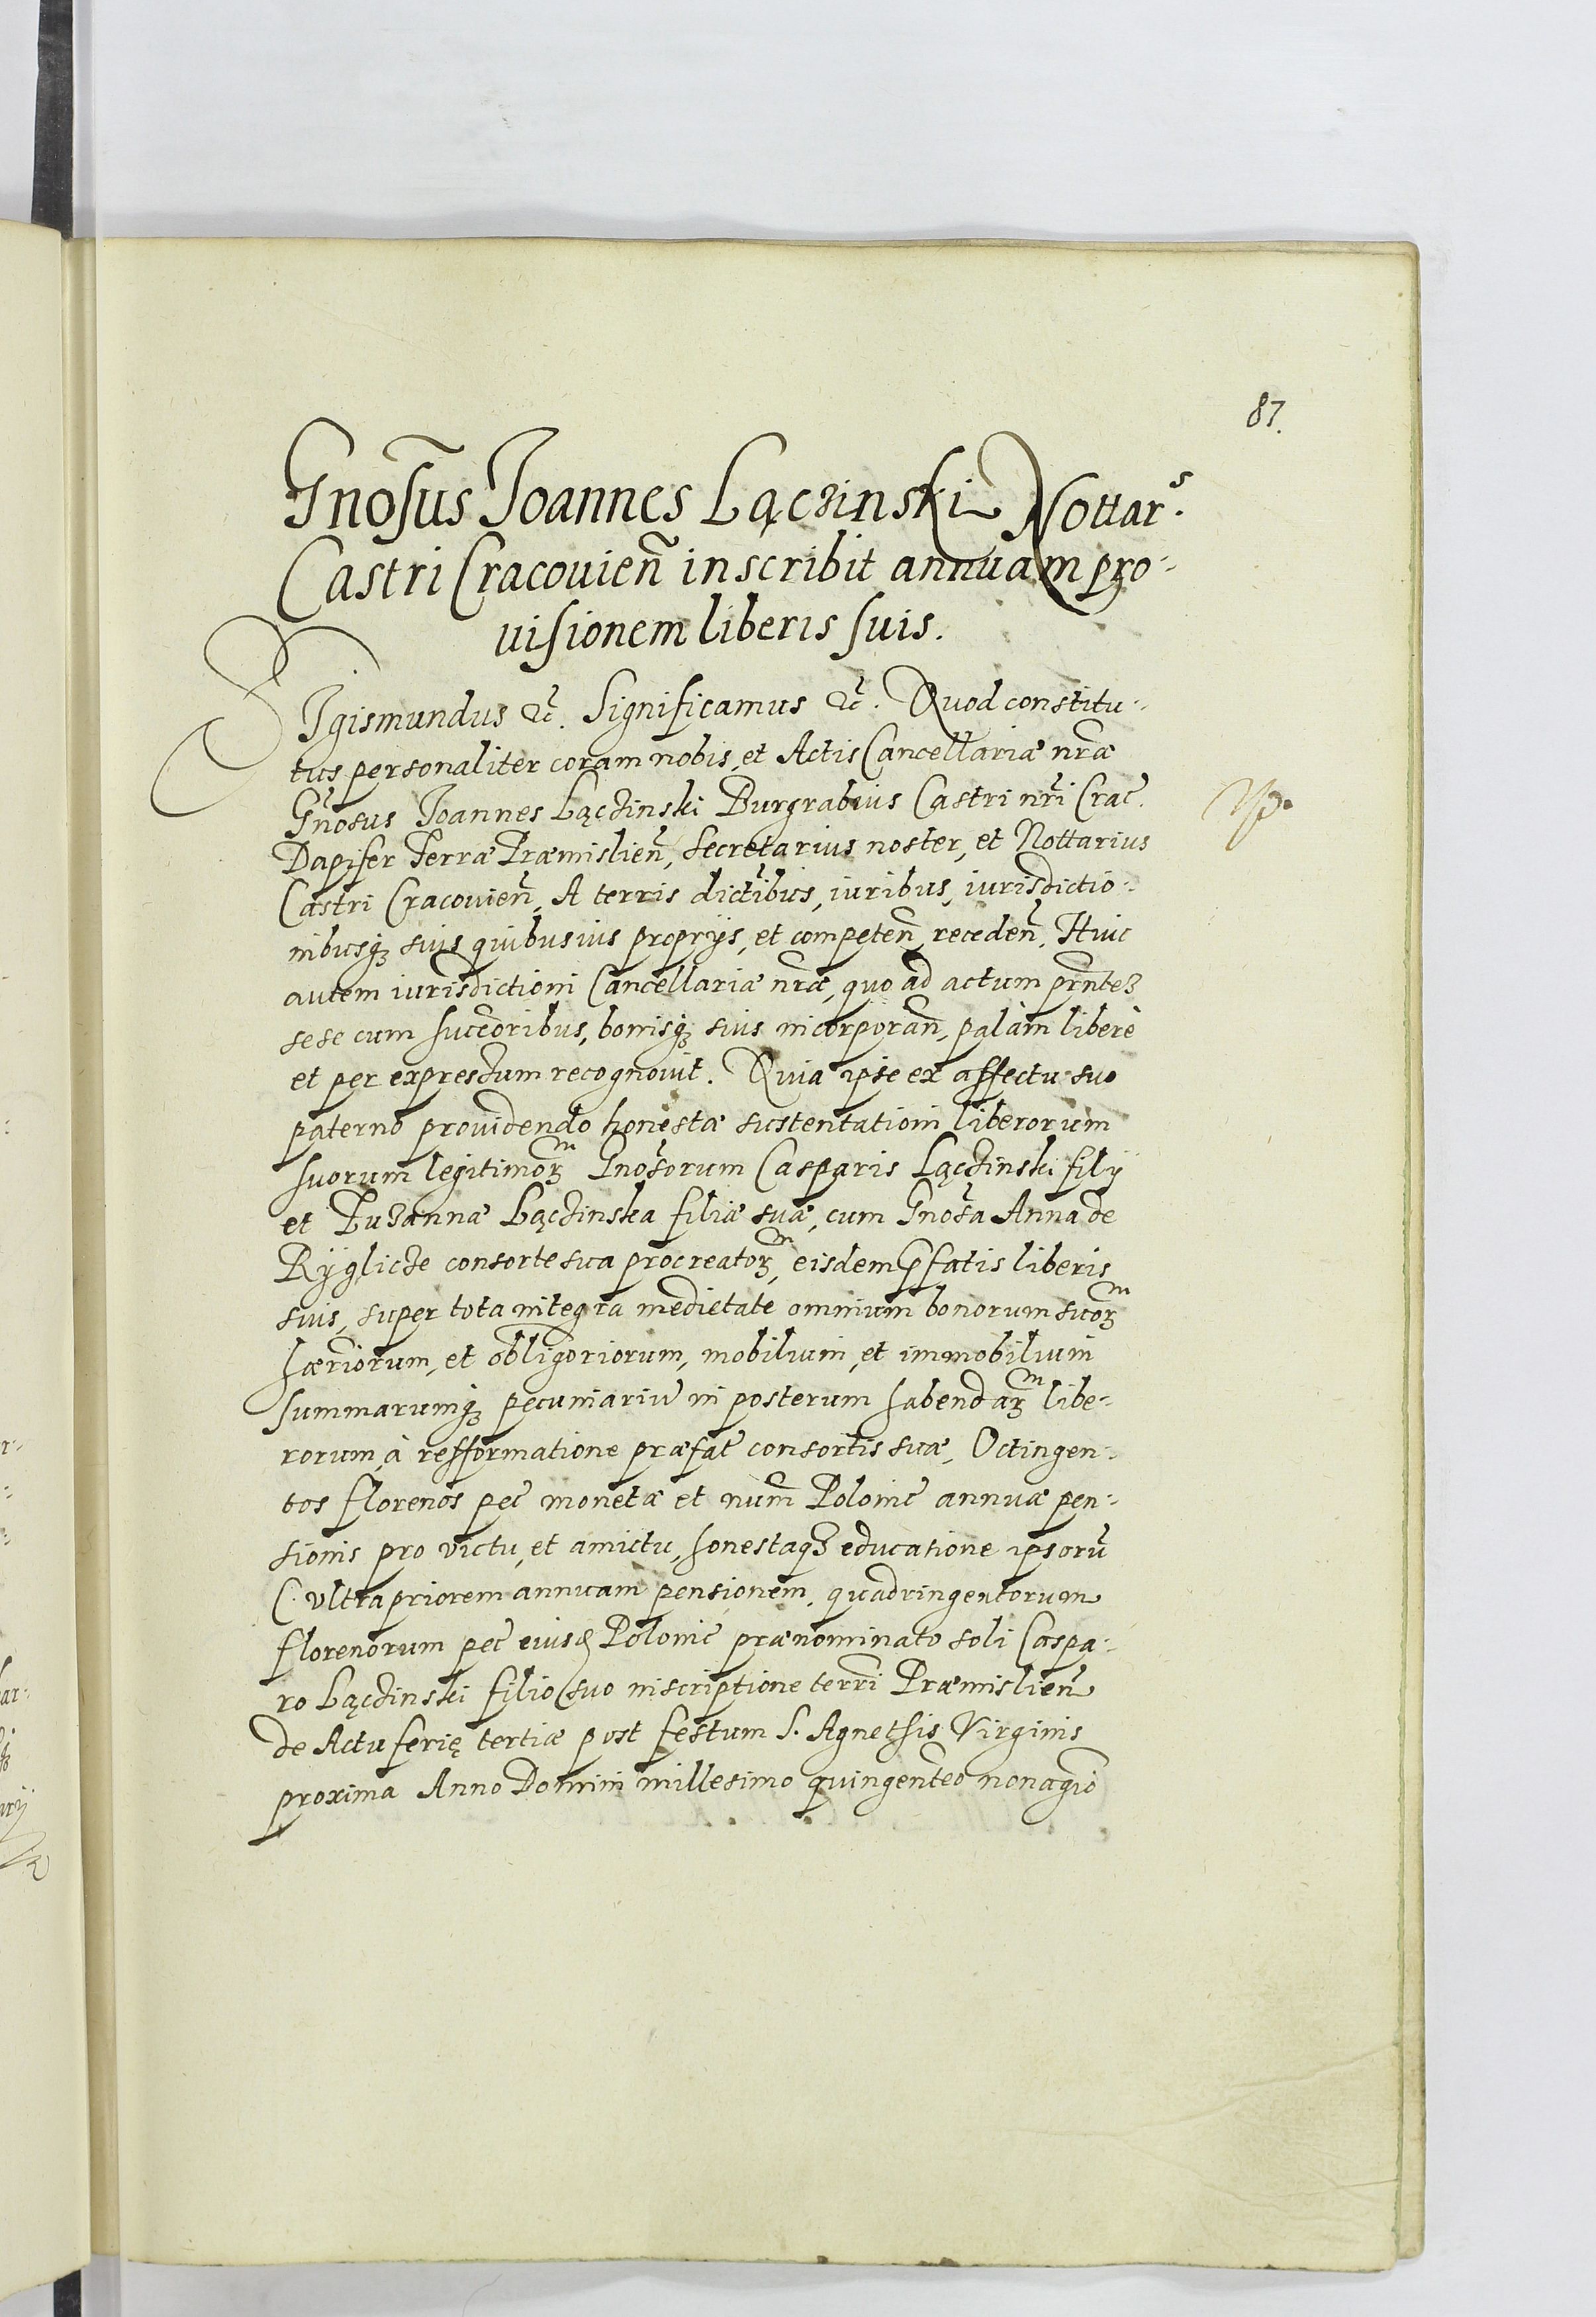 87.
Gnos̃us Joannes Lączinski Nottarˢ.
Castri Cracovieñ inscribit annuam pro-
uisionem liberis suis.
SIgismundus ꝛc̃. Significamus ꝛc̃. Quod constitu-
tus personaliter coram nobis, et Actis Cancellariæ nr̃æ
Gñosus Joannes Lączinski Burgrabius Castri nr̃i Crac̃.
Dapifer Terræ Præmislieñ, Secretarius noster, et Nottarius
Castri Cracovieñ, A terris dict̃ibus, iuribus, iurisdictio-
nibusqꝫ suis quibusuis proprijs, et competeñ, recedeñ, Huic
autem iurisdictioni Cancellariæ nr̃æ, quo ad actum pñtẽꝫ
sese cum succ̃oribus, bonisqꝫ suis incorporañ, palàm liberè
et per expressum recognouit. Quia ipse ex affectu suo
paterno prouidendo honestæ sustentationi liberorum
suorum legitimoꝝᵐ Gnos̃orum Casparis Lączinski filij
et Zuzannæ Łączinska filiæ suæ, cum Gnos̃a Anna de
Ryglicze consorte sua procreatoꝝᵐ, eisdem p̃fatis liberis
suis, super tota integra medietate omnium bonorum suoꝝᵐ
hær̃iorum, et obligõriorum, mobilium, et immobilium
summarumqꝫ pecuniariũ in posterum habendaꝝᵐ libe-
rorum à refformatione præfat̃ consortis suæ, Octingen-
tos florenos pec̃ monetæ et num̃ Polonic̃ annuæ pen-
sionis pro victu, et amictu, honestaqꝫ educatione ipsorũ
(. vltra priorem annuam pensionem, quadringentorum
florenorum pec̃ eiusd̃ Polonic̃ prænominato soli Caspa-
ro Łączinski filio suo inscriptione terr̃i Præmislieñ
de Actu ferię tertiæ post festum S. Agnethis Virginis
proxima Anno Domini millesimo quingenteõ nonagĩo